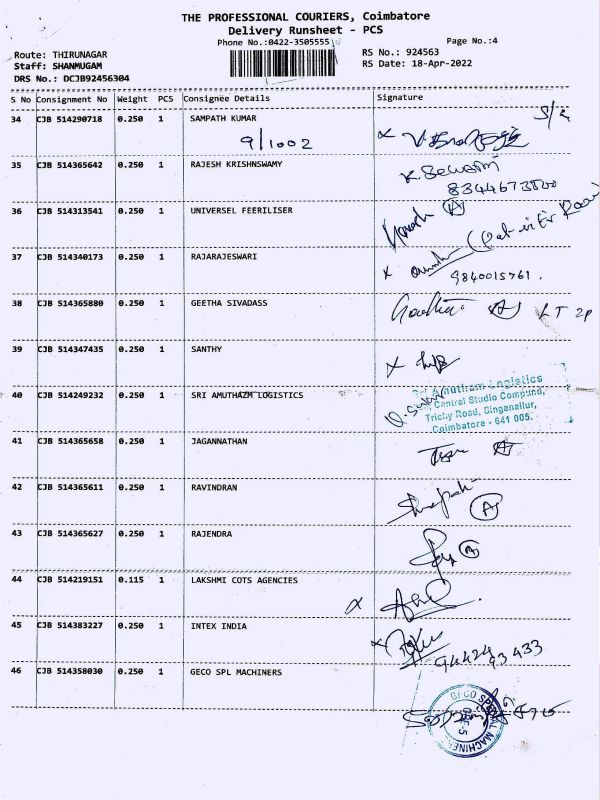 THE PROFESSIONAL COURIERS, Coimbatore
Delivery Runsheet - PCS
Phone No.:0422-3505555 Page No.:4
Route: THIRUNAGAR RS No.: 924563
Staff: SHANMUGAM RS Date: 18-Apr-2022
DRS No.: DCJB92456304
S No Consignment No Weight PCS Consignee Details Signature
34 CJB 514290718 0.250 1 SAMPATH KUMAR
9/1002
35 CJB 514365642 0.250 1 RAJESH KRISHNSWAMY
36 CJB 514313541 0.250 1 UNIVERSEL FEERILISER
37 CJB 514340173 0.250 1 RAJARAJESWARI
9840015761.
38 CJB 514365880 0.250 1 GEETHA SIVADASS
39 CJB 514347435 0.250 1 SANTHY
40 CJB 514249232 0.250 1 SRI AMUTHAZM LOGISTICS
Sri Amutham Logistics
Central Studio Compund,
Trichy Road, Singanallur,
Coimbatore - 641 005.
41 CJB 514365658 0.250 1 JAGANNATHAN
42 CJB 514365611 0.250 1 RAVINDRAN
A
43 CJB 514365627 0.250 1 RAJENDRA
44 CJB 514219151 0.115 1 LAKSHMI COTS AGENCIES
45 CJB 514383227 0.250 1 INTEX INDIA
46 CJB 514358030 0.250 1 GECO SPL MACHINERS
GECO SPECIAL MACHINES